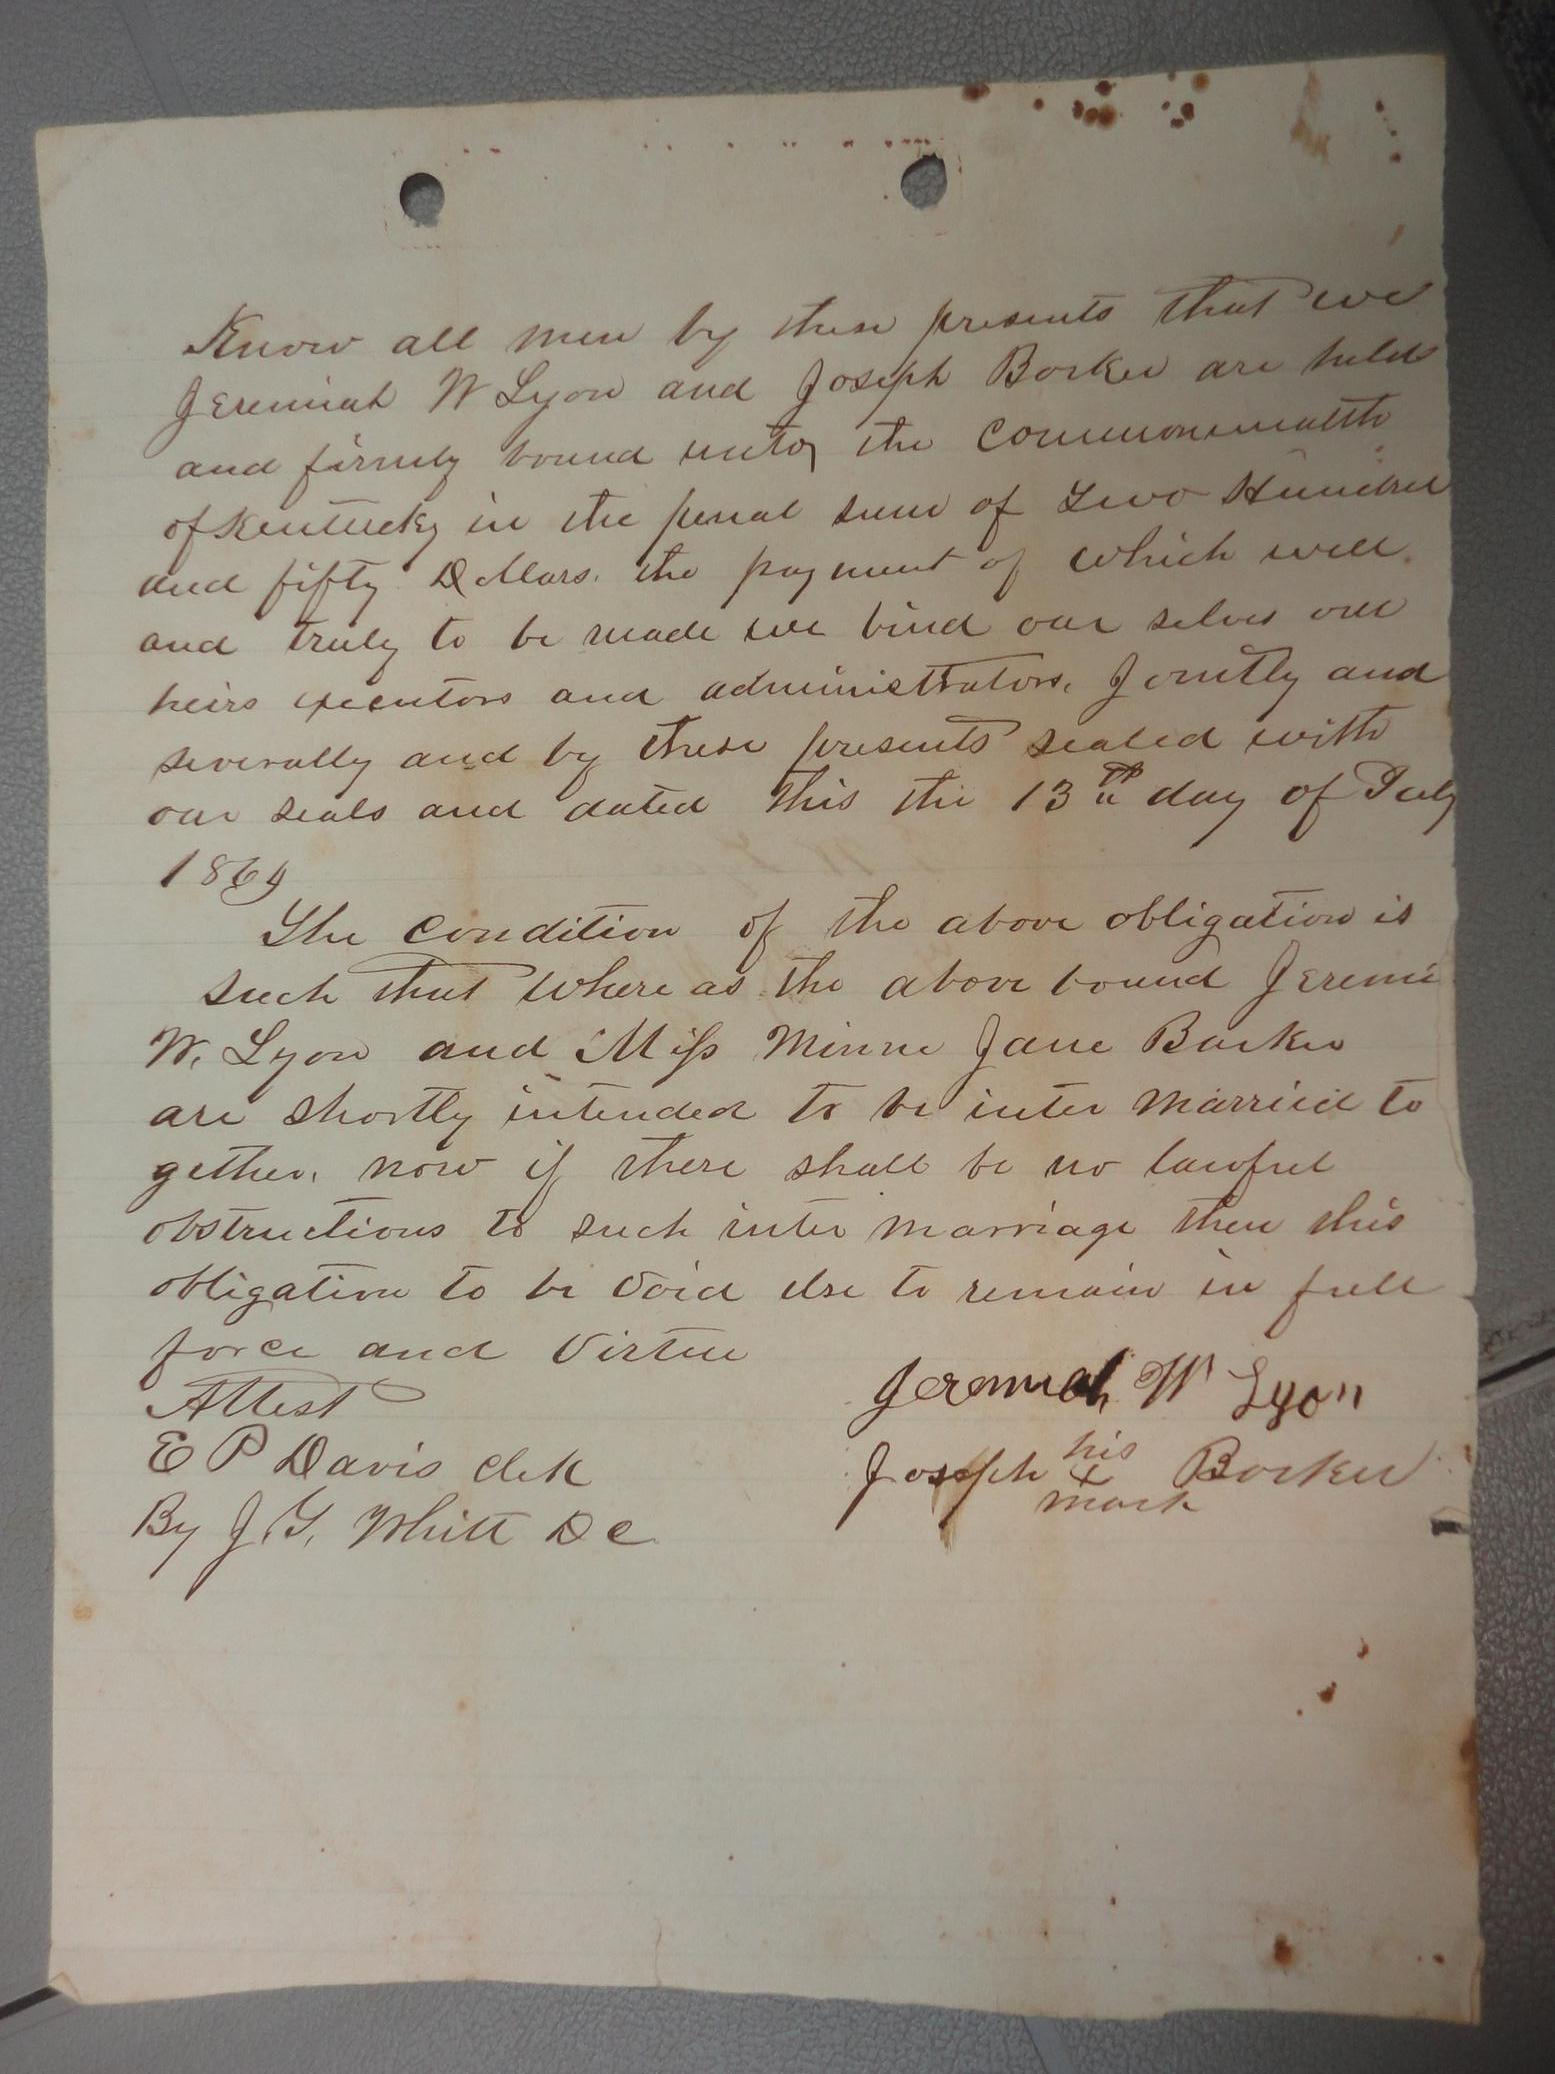 Know all men by these presents that we
Jeremiah W Lyon and Joseph Borker are held
and firmly bound unto the Commonwealth
of Kentucky in the penal sum of Two Hundred
and fifty Dollars. the payment of which well
and truly to be made we bind our selves our
heirs executors and administrators, Jointly and
severally and by these presents sealed with
our seals and dated this the 13th day of July
1864
The condition of the above obligation is
such that where as the above bound Jeremi
W. Lyon and Miss Minne Jane Barker
are shortly intended to be inter married to
gether, now if there shall be no lawful
obstructions to such inter marriage then this
obligation to be void else to remain in full
force and Virtue
Attest
E P Davis Clk
By J. Y. Whitt D C
Jeremiah W Lyon
his
Joseph X Borker
mark